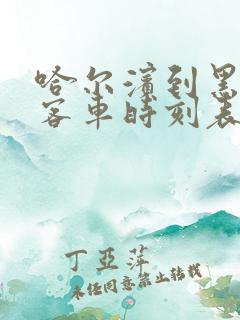 哈尔滨到黑
客车时刻表
丁亚萍
未经同意禁止转载